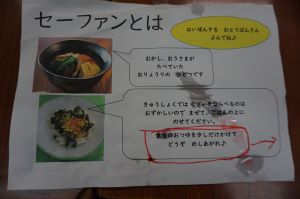 セーファンとは
はいぜんする おとうばんさん
よんでね♪
むかし、おうさまが
たべていた
おりょうりの ひとつです
きゅうしょくでは ぐざいをならべるのは
むずかしいので まぜて、ごはんの上に
のせてください。
食缶のおつゆを少しだけかけて
どうぞ めしあがれ♪